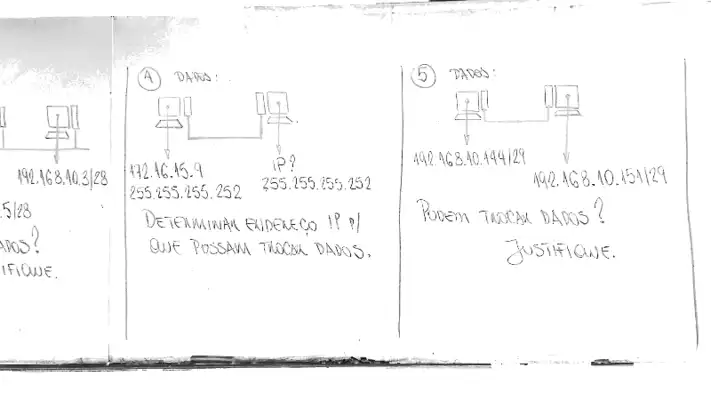 192.168.10.3/28
.5/28
ADOS?
IFIQUE.
4 DADOS:
172.16.15.9
255.255.255.252
IP?
255.255.255.252
DETERMINAR ENDEREÇO IP P/
QUE POSSAM TROCAR DADOS.
5 DADOS:
192.168.10.144/29
192.168.10.151/29
PODEM TROCAR DADOS?
JUSTIFIQUE.